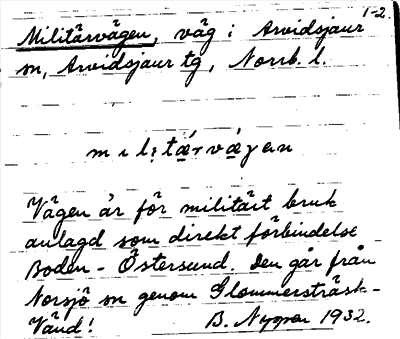 1-2.
Militärvägen, väg i Arvidsjaur
sn, Arvidsjaur tg, Norrb. l.
militǽrvǽgen
Vägen är för militärt bruk
anlagd som direkt förbindelse
Boden - Östersund. Den går från
Norsjö sn genom Glommersträsk-
Vänd!
B. Nygren 1932.